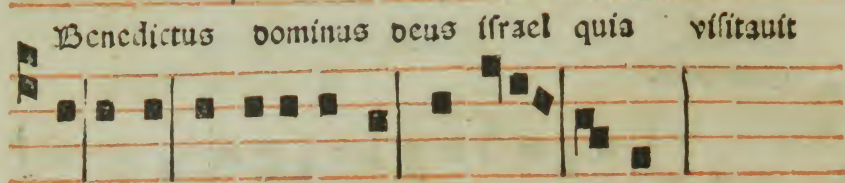 Benedictus dominus deus iſrael quia viſitauit